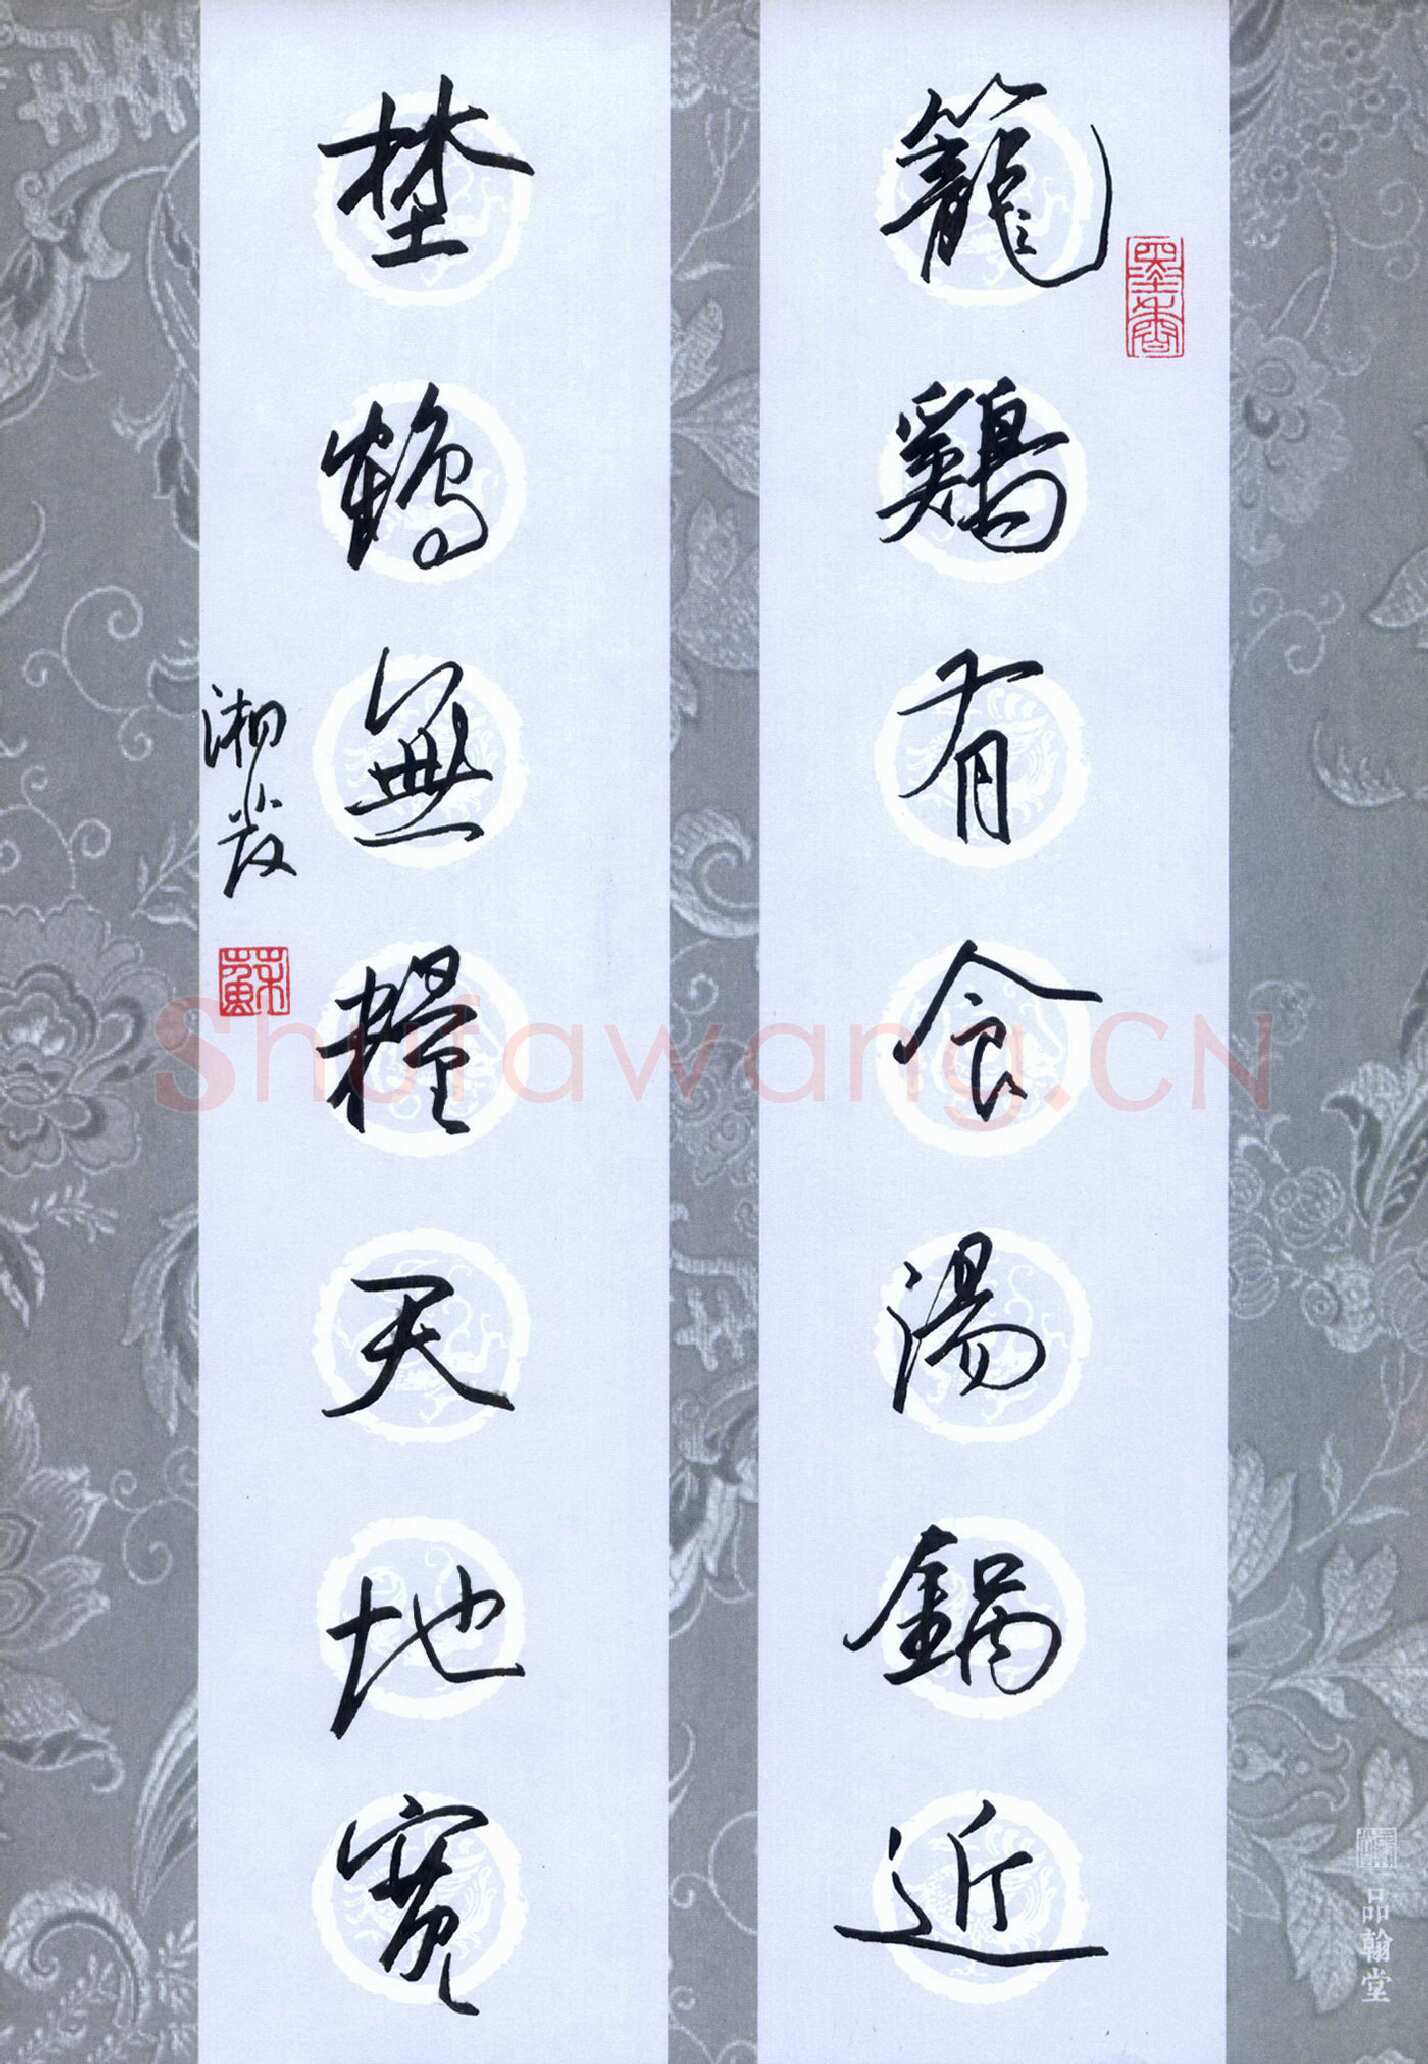 籠鷄有食湯鍋近
埜鶴無糧天地寬
湘
墨香
蘇
品翰堂
Shufawang.CN